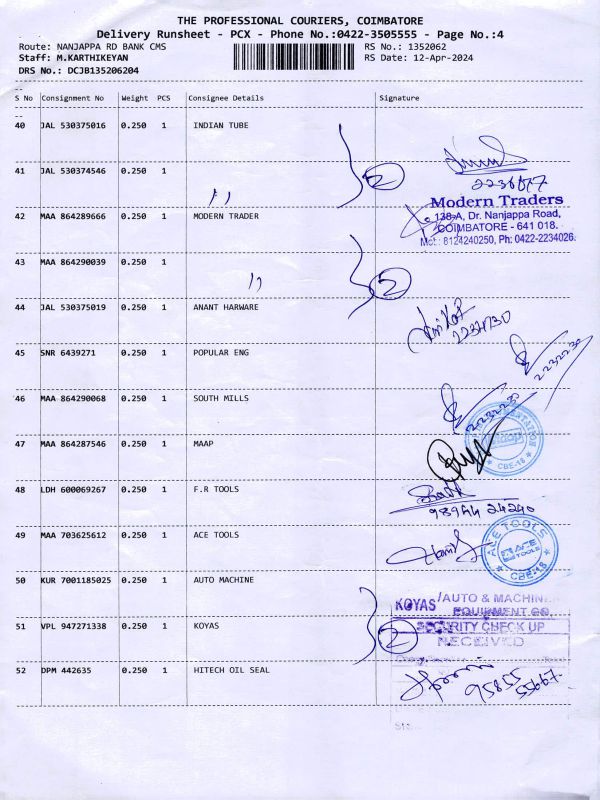 THE PROFESSIONAL COURIERS, COIMBATORE
Delivery Runsheet - PCX - Phone No.:0422-3505555 - Page No.:4
Route: NANJAPPA RD BANK CMS RS No.: 1352062
Staff: M.KARTHIKEYAN RS Date: 12-Apr-2024
DRS No.: DCJB135206204
S No Consignment No Weight PCS Consignee Details Signature
40 JAL 530375016 0.250 1 INDIAN TUBE
41 JAL 530374546 0.250 1
2
Modern Traders
42 MAA 864289666 0.250 1 MODERN TRADER
138-A, Dr. Nanjappa Road,
COIMBATORE - 641 018.
Mct.: 8124240250, Ph: 0422-2234026.
43 MAA 864290039 0.250 1
2
44 JAL 530375019 0.250 1 ANANT HARWARE
45 SNR 6439271 0.250 1 POPULAR ENG
2232230
46 MAA 864290068 0.250 1 SOUTH MILLS
2232230
47 MAA 864287546 0.250 1 MAAP
CBE-18
48 LDH 600069267 0.250 1 F.R TOOLS
98944 24240
49 MAA 703625612 0.250 1 ACE TOOLS
ACE TOOLS
ACE
TOOLS
CBE-18
50 KUR 7001185025 0.250 1 AUTO MACHINE
KOYAS AUTO & MACHINE
EQUIPMENT CO.
51 VPL 947271338 0.250 1 KOYAS
2
SECURITY CHECK UP
RECEIVED
52 DPM 442635 0.250 1 HITECH OIL SEAL
95855
55667